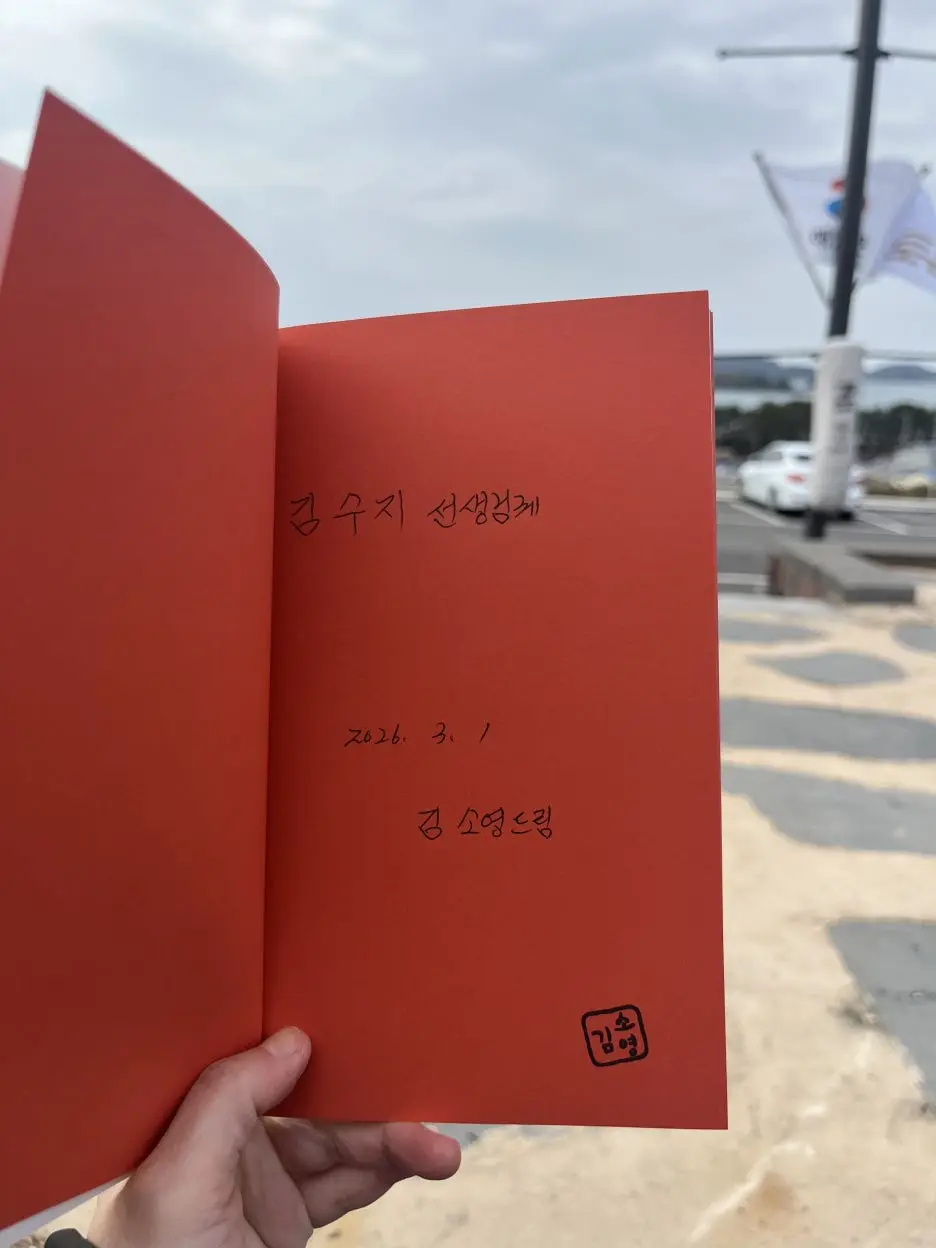 김수지 선생님께
2026. 3. 1
김 소영드림
김소영